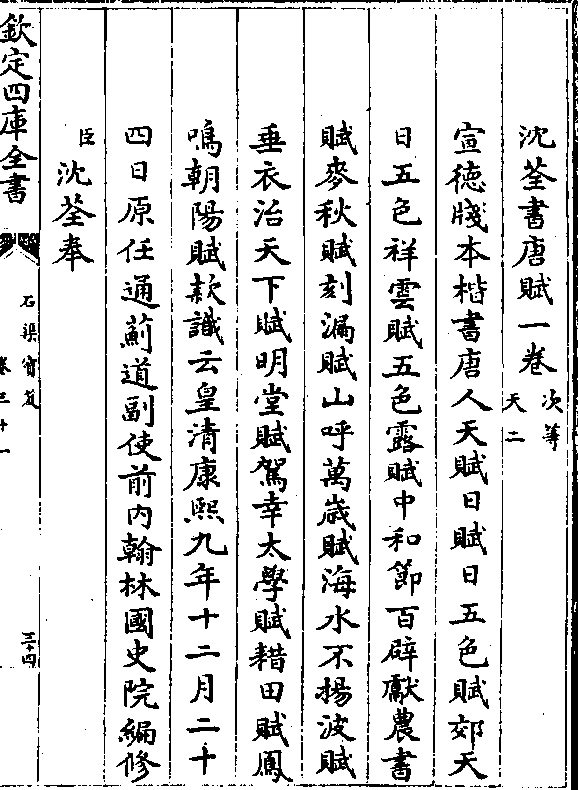 沈荃書唐賦一卷 次等
天二
宣德牋本楷書唐人天賦日賦日五色賦郊天
日五色祥雲賦五色露賦中和節百辟獻農書
賦麥秋賦刻漏賦山呼萬歲賦海水不揚波賦
垂衣治天下賦明堂賦駕幸太學賦耤田賦鳳
鳴朝陽賦款識云皇清康熙九年十二月二十
四日原任通薊道副使前内翰林國史院編修
臣沈荃奉
欽定四庫全書
石渠寶笈
卷三十一
三十四